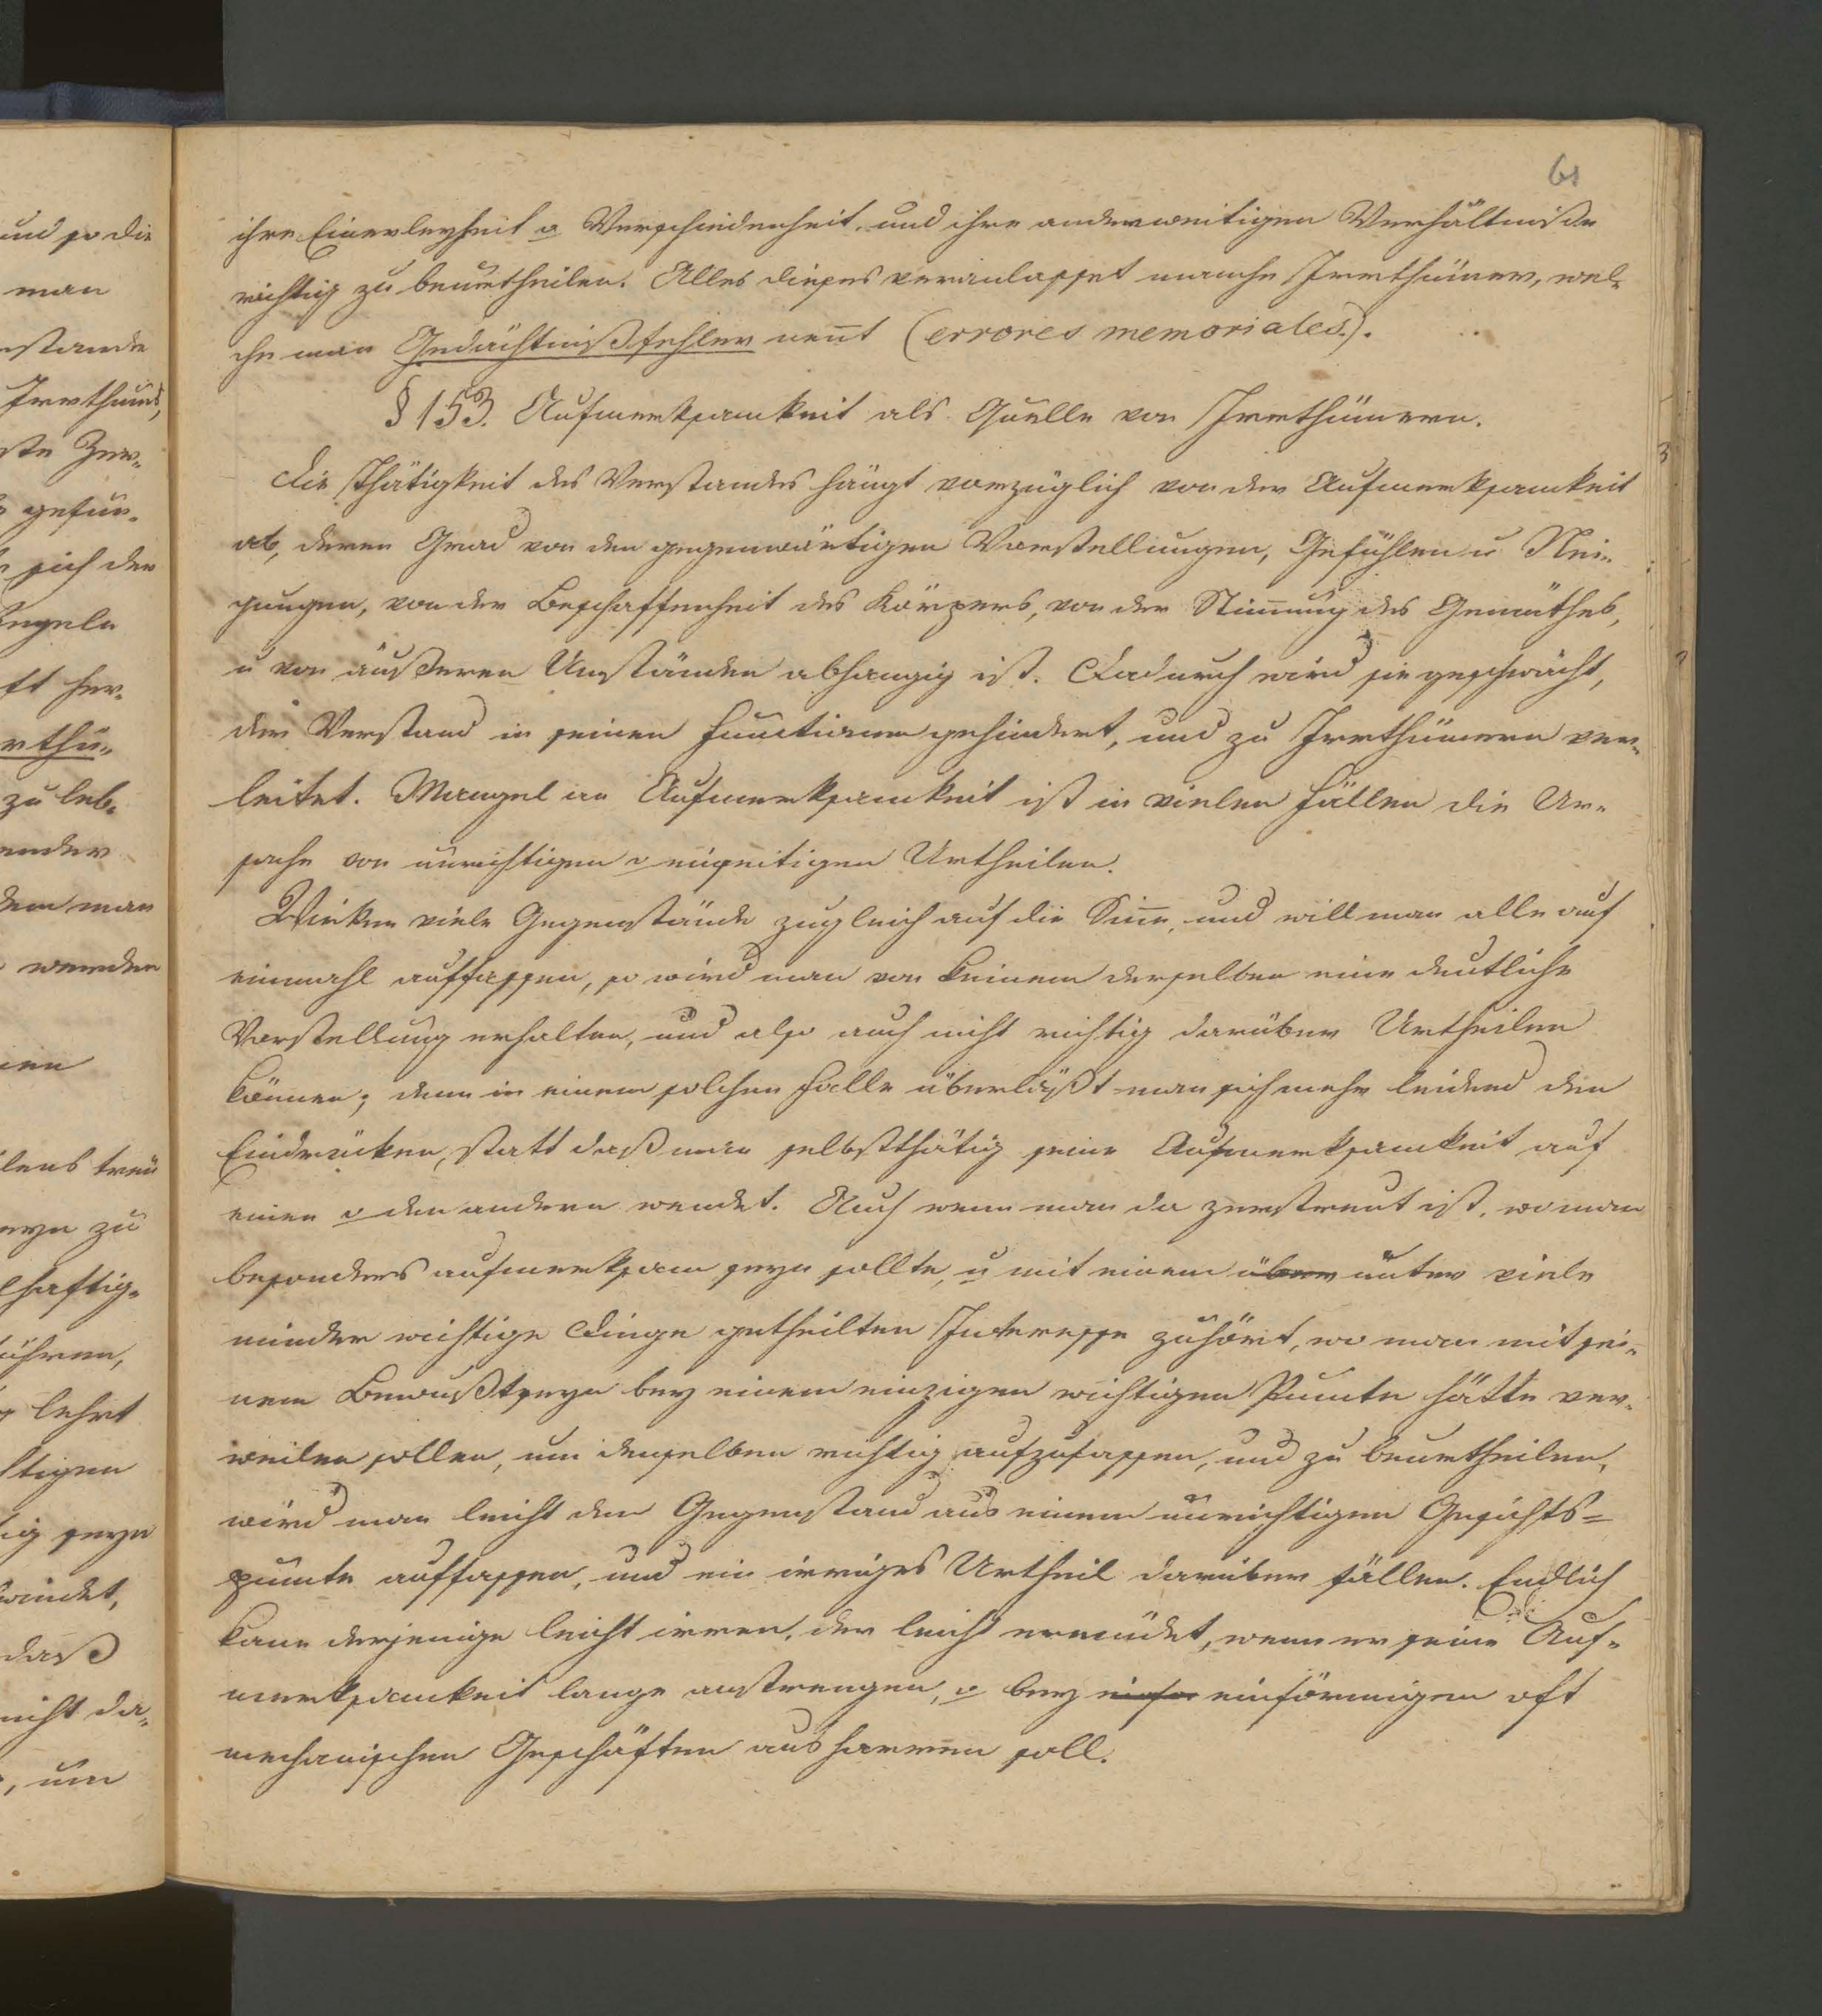 61
ihre Einerleyheit o Verschiedenheit, und ihre anderweitigen Verhältniße
richtig zu beurtheilen. Alles dieses veranlasset manche Irrthümer, wel-
che man Gedächtnißfehler nen̄t (errores memoriales).
§ 153. Aufmerksamkeit als Quelle von Irrthümern.
Die Thätigkeit des Verstandes hängt vorzüglich von der Aufmerksamkeit
ab, deren Grad von den gegenwärtigen Vorstellungen, Gefühlen u Nei-
gungen, von der Beschaffenheit des Körpers, von der Stim̄ung des Gemüthes,
u von äußeren Umständen abhangig ist. Dadurch wird sie geschwächt,
der Verstand in seinen Functionen gehindert, und zu Irrthümern ver-
leitet. Mangel an Aufmerksamkeit ist in vielen Fällen die Ur-
sache von unrichtigen o einseitigen Urtheilen.
Wirken viele Gegenstände zugleich auf die Sin̄e, und will man alle auf
einmahl auffassen, so wird man von keinem derselben eine deutliche
Vorstellung erhalten, und also auch nicht richtig darüber Urtheilen
können; denn in einem solchen Falle überläßt man sich mehr leidend den
Eindrücken, statt daß man selbstthätig seine Aufmerksamkeit auf
einen o den andern wendet. Auch wenn man da zerstreut ist, wo man
besonders aufmerksam seyn sollte, u mit einem über unter viele
minder wichtige Dinge getheilten Interesse zuhört, wo man mit sei-
nem Bewußtseyn bey einem einzigen wichtigen Puncte hätte ver-
weilen sollen, um denselben richtig aufzufassen, und zu beurtheilen,
wird man leicht den Gegenstand aus einem unrichtigen Gesichts=
puncte auffassen, und ein irriges Urtheil darüber fällen. Endlich
kann derjenige leicht irren, der leicht ermüdet, wenn er seine Auf-
merksamkeit lange anstrengen, o bey einför einförmigen oft
mechanischen Geschäften ausharren soll.